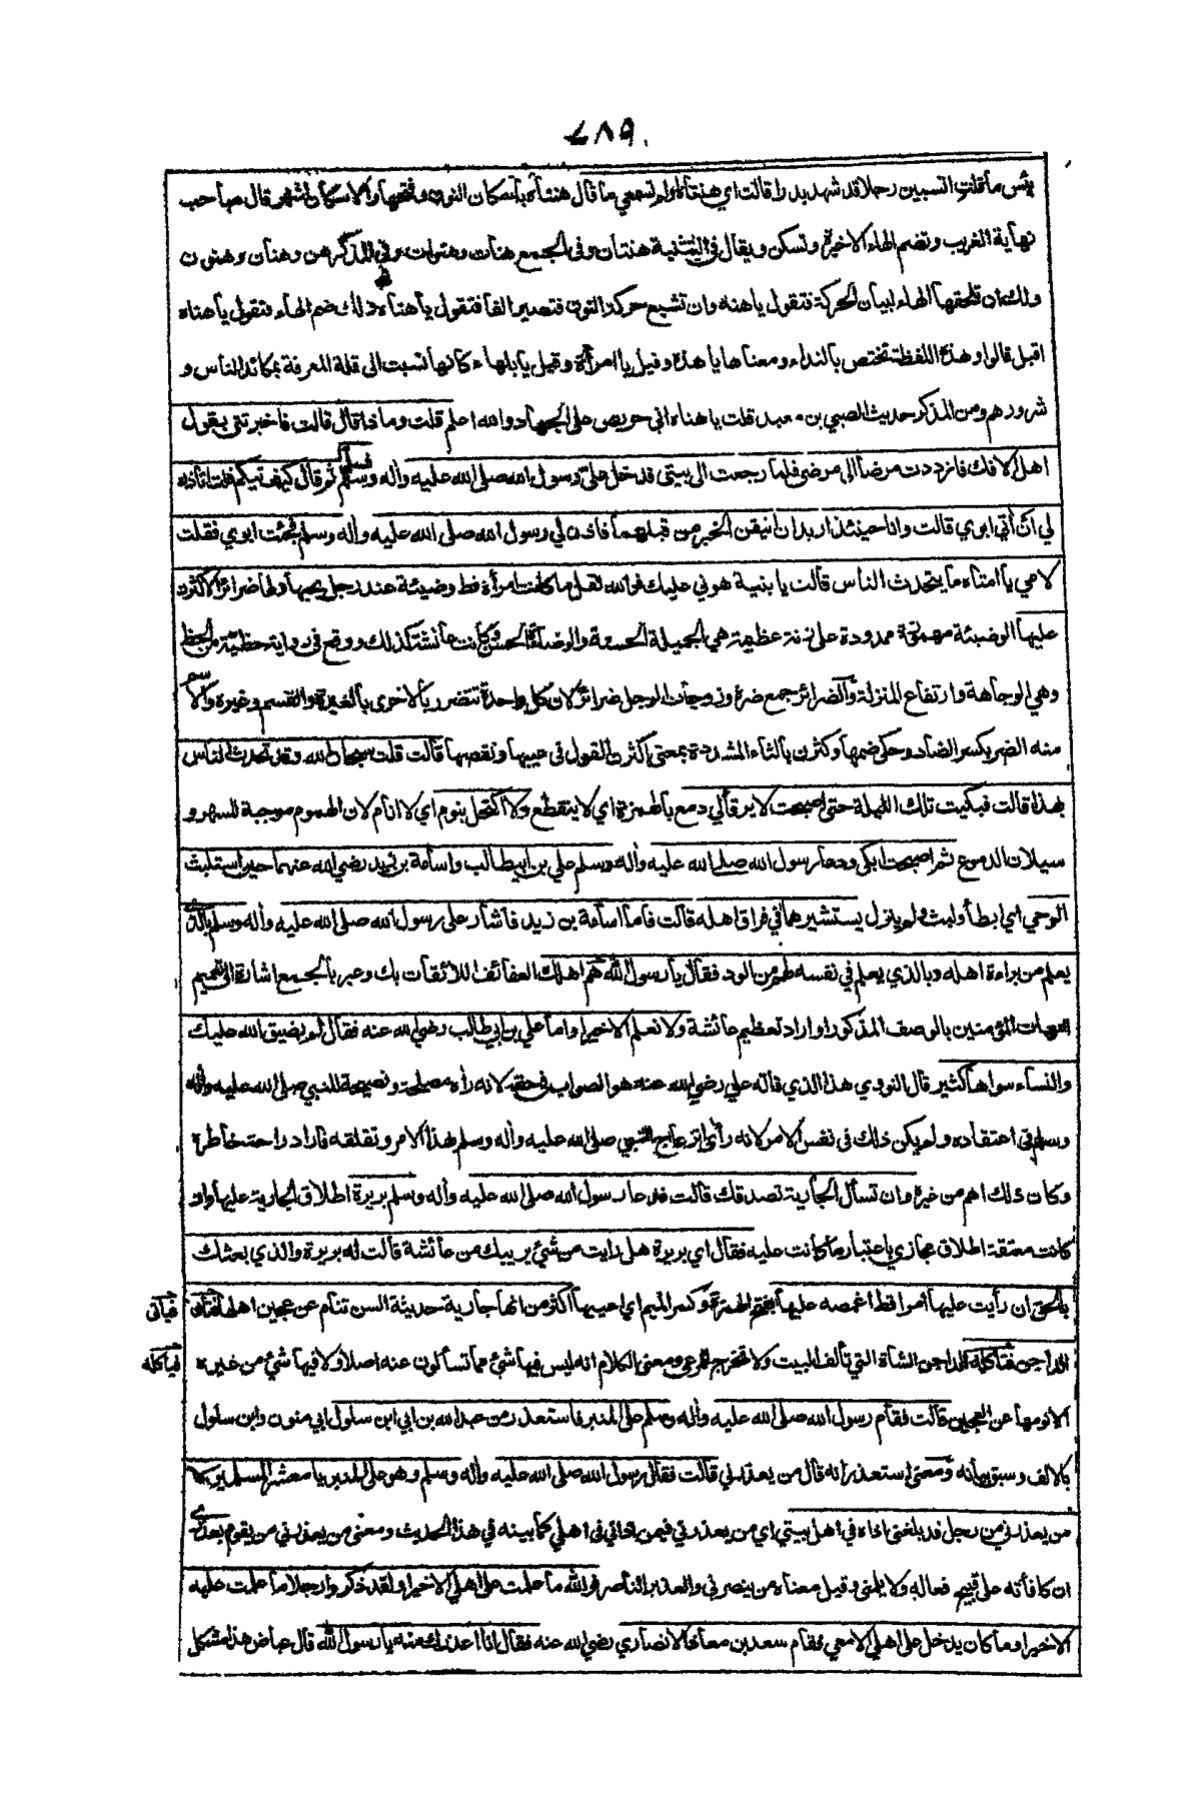 ٤٨٩
بئس ما قلت اتسبين رجلا قد شهد بدرا قالت اي هنتاه اولم تسمعي ما قال هنتاه باسكان النون وفتحها والاسكان اشهر قال صاحب
نهاية الغريب وتضم الهاء الاخيرة وتسكن ويقال في التثنية هنتان وفي الجمع هنات وهنوات وفي المذكر هن وهنان وهنون
ولك ان تلحقها الهاء لبيان الحركة فتقول ياهنه وان تشبع حركة النون فتصير الفا فتقول ياهناه ولك ضم الهاء فتقول ياهناه
اقبل قالوا وهذه اللفظة تختص بالنداء ومعناها يا هذه وقيل يا امرأة وقيل يا بلهاء كانها نسبت الى قلة المعرفة بمكائد الناس و
شرورهم ومن المذكر حديث الصبي بن معبد قلت يا هناه اني حريص على الجهاد والله اعلم قلت وما ذا قال قالت فاخبرتني بقول
اهل الافك فازددت مرضا الى مرضي فلما رجعت الى بيتي فدخل علي رسول الله صلى الله عليه وأله وسلم فسلم ثم قال كيف تيكم قلت اتأذن
لي ان أتي ابوي قالت وانا حينئذ اريد ان اتيقن الخبر من قبلهما فاذن لي رسول الله صلى الله عليه وأله وسلم فجئت ابوي فقلت
لامي يا امتاه ما يتحدث الناس قالت يا بنية هوني عليك فوالله لقل ما كانت امرأة قط وضيئة عند رجل يحبها ولها ضرائر الاكثرن
عليها الوضيئة مهموزة ممدودة على زنة عظيمة هي الجميلة الحسنة والوضاءة الحسن وكانت عائشة كذلك ووقع في رواية حظية من الحظ
وهي الوجاهة وارتفاع المنزلة والضرائر جمع ضرة وزوجات الرجل ضرائر لان كل واحدة تتضرر بالاخرى بالغيرة والقسم وغيره والاسم
منه الضر بكسر الضاد وحكي ضمها وكثرن بالثاء المشددة بمعنى اكثرن القول في عيبها ونقصها قالت قلت سبحان الله وقد تحدث الناس
بهذا قالت فبكيت تلك الليلة حتى اصبحت لا يرقأ لي دمع بالهمزة اي لا ينقطع ولا اكتحل بنوم اي لا انام لان الهموم موجبة للسهر و
سيلان الدموع ثم اصبحت ابكي ودعا رسول الله صلى الله عليه وأله وسلم علي بن ابيطالب واسامة بن زيد رضي الله عنهما حين استلبث
الوحي اي ابطأ ولبث ولم ينزل يستشيرهما في فراق اهله قالت فاما اسامة بن زيد فاشار على رسول الله صلى الله عليه وأله وسلم بالذي
يعلم من براءة اهله وبالذي يعلم في نفسه لهم من الود فقال يا رسول الله هم اهلك العفائف اللائقات بك وعبر بالجمع اشارة الى تعميم
امهات المؤمنين بالوصف المذكور او اراد تعظيم عائشة ولا نعلم الا خيرا واما علي بن ابي طالب رضي الله عنه فقال لم يضيق الله عليك
والنساء سواها كثير قال النووي هذا الذي قاله علي رضي الله عنه هو الصواب في حقه لانه راه مصلحة ونصيحة للنبي صلى الله عليه وأله
وسلم في اعتقاده ولم يكن ذلك في نفس الامر لانه رأى انزعاج النبي صلى الله عليه وأله وسلم بهذا الامر وتقلقه فاراد راحة خاطره
وكان ذلك اهم من غيره وان تسأل الجارية تصدقك قالت فدعا رسول الله صلى الله عليه وأله وسلم بريرة اطلاق الجارية عليها وان
كانت معتقة اطلاق مجازي باعتبار ما كانت عليه فقال اي بريرة هل رايت من شيء يريبك من عائشة قالت له بريرة والذي بعثك
بالحق ان رأيت عليها امرا قط اغمصه عليها بفتح الهمزة وكسر الميم اي اعيبها اكثر من انها جارية حديثة السن تنام عن عجين اهلها فتأتي فيأتي
الداجن فتأكله الداجن الشاة التي تألف البيت ولا تخرج للمرعى ومعنى الكلام انه ليس فيها شيء مما تسألون عنه اصلا ولا فيها شيء من غيره فيأكله
الا نومها عن العجين قالت فقام رسول الله صلى الله عليه وأله وسلم على المنبر فاستعذر من عبد الله بن ابي ابن سلول ابي منون وابن سلول
بالالف وسبق بيانه ومعنى استعذر انه قال من يعذرني قالت فقال رسول الله صلى الله عليه وأله وسلم وهو على المنبر يا معشر المسلمين
من يعذرني من رجل قد بلغني اذاه في اهل بيتي اي من يعذرني فيمن اذاني في اهلي كما بينه في هذا الحديث ومعنى من يعذرني من يقوم بعذري
ان كافأته على قبيح فعاله ولا يلمني وقيل معناه من ينصرني والعذير الناصر فوالله ما علمت على اهلي الا خيرا ولقد ذكروا رجلا ما علمت عليه
الا خيرا وما كان يدخل على اهلي الا معي فقام سعد بن معاذ الانصاري رضي الله عنه فقال انا اعذرك منه يا رسول الله قال عياض هذا مشكل